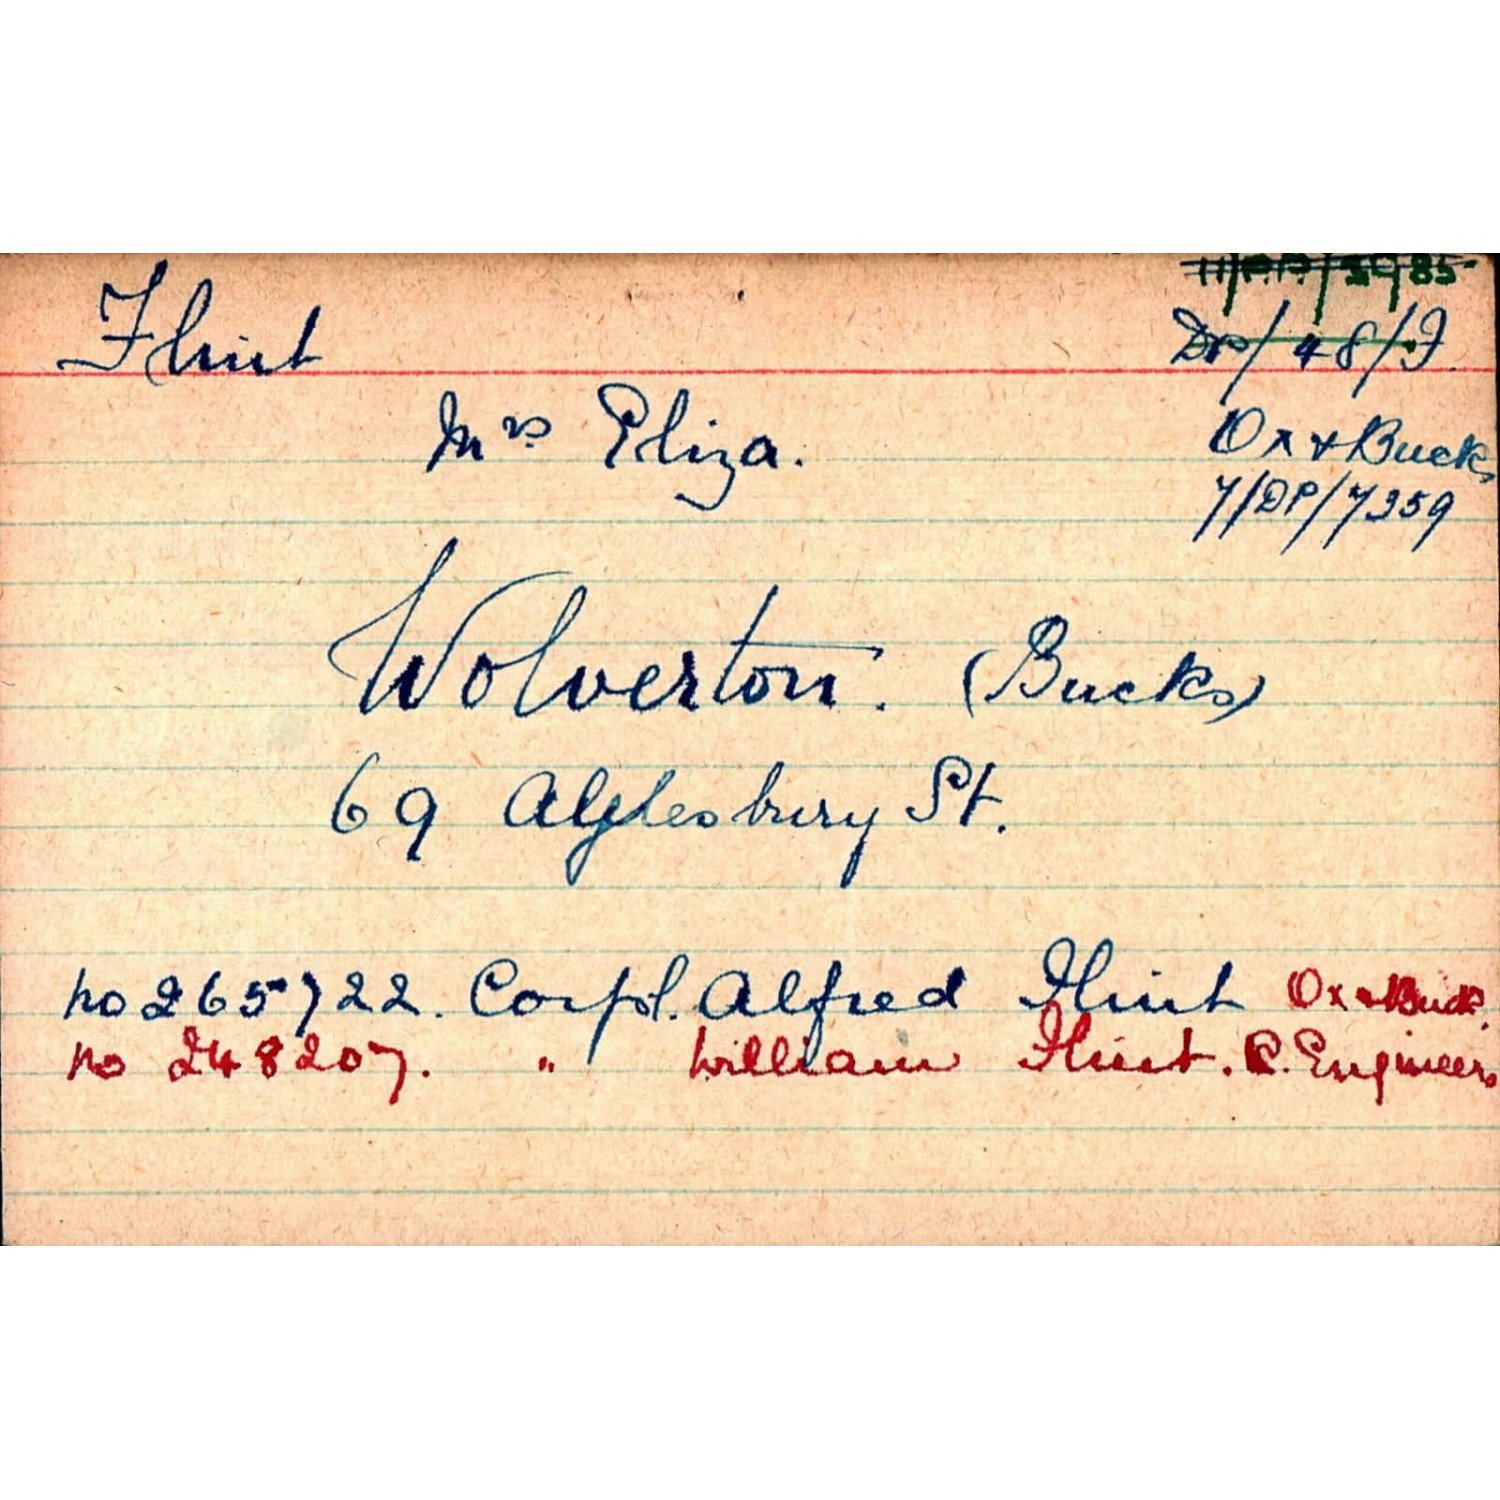 11/P.P./5985
Flint
DP/48/F.
Mrs Eliza.
Ox & Bucks
7/DP/7359
Wolverton. (Bucks)
69 Aylesbury St.
No 265722. Corpl. Alfred Flint Ox & Buck.
No 248207. " William Flint. R. Engineers